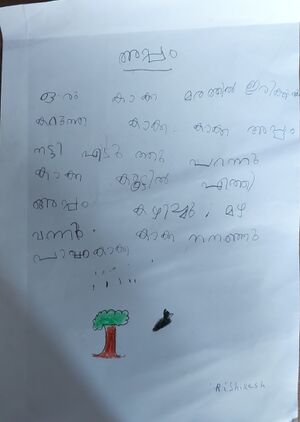 അപ്പം
ഒരു കാക്ക മരത്തിൽ ഇരിക്കുന്നു
കറുത്ത കാക്ക. കാക്ക അപ്പം
തട്ടി എടുത്തു പറന്നു
കാക്ക കൂട്ടിൽ എത്തി
അപ്പം കഴിച്ചു. മഴ
വന്നു. കാക്ക നനഞ്ഞു
പാവം കാക്ക
Rishikesh